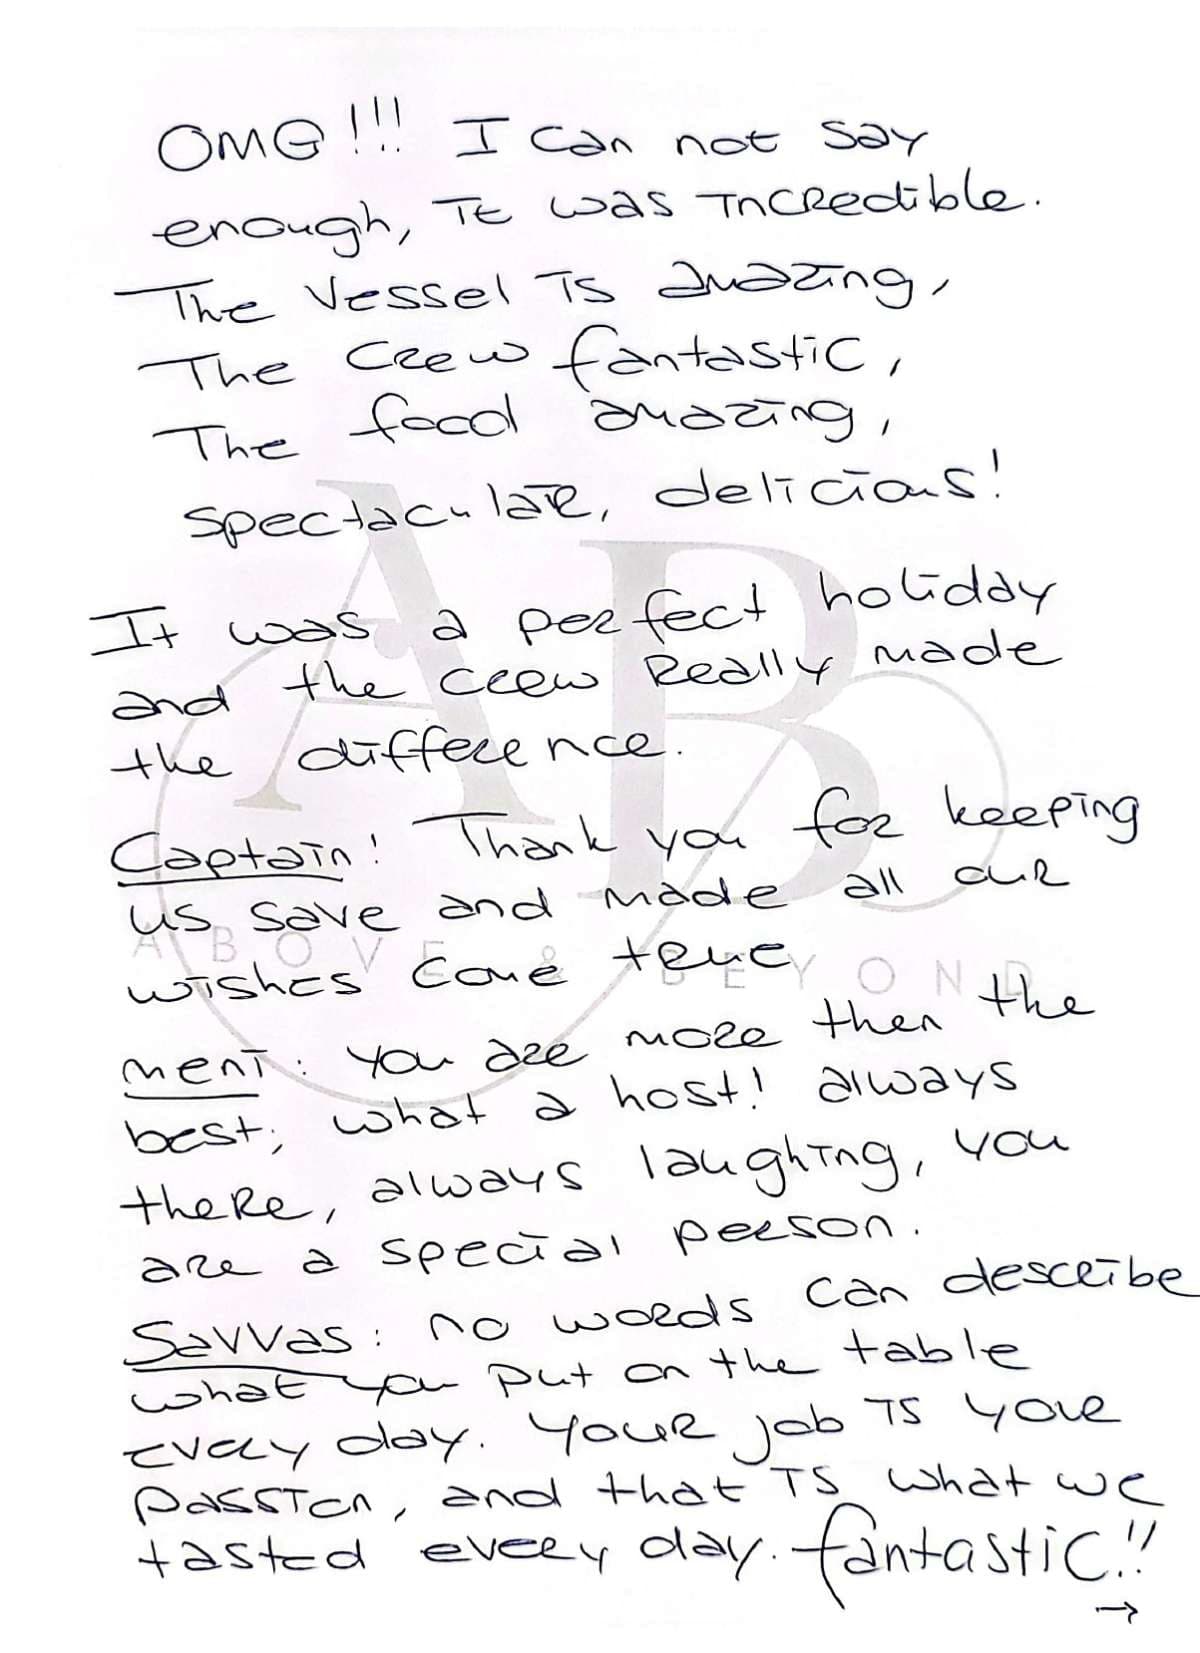 OMG!!! I can not say
enough, it was incredible.
The vessel is amazing,
The crew fantastic,
The food amazing,
spectaculair, delicious!
It was a perfect holiday
and the crew really made
the difference.
Captain! Thank you for keeping
us save and made all our
wishes come true
Meni: you are more then the
best, what a host! always
there, always laughing, you
are a special person.
Savvas: no words can describe
what you put on the table
every day. Your job is your
passion, and that is what we
tasted every day. fantastic!!
→
AB
ABOVE & BEYOND